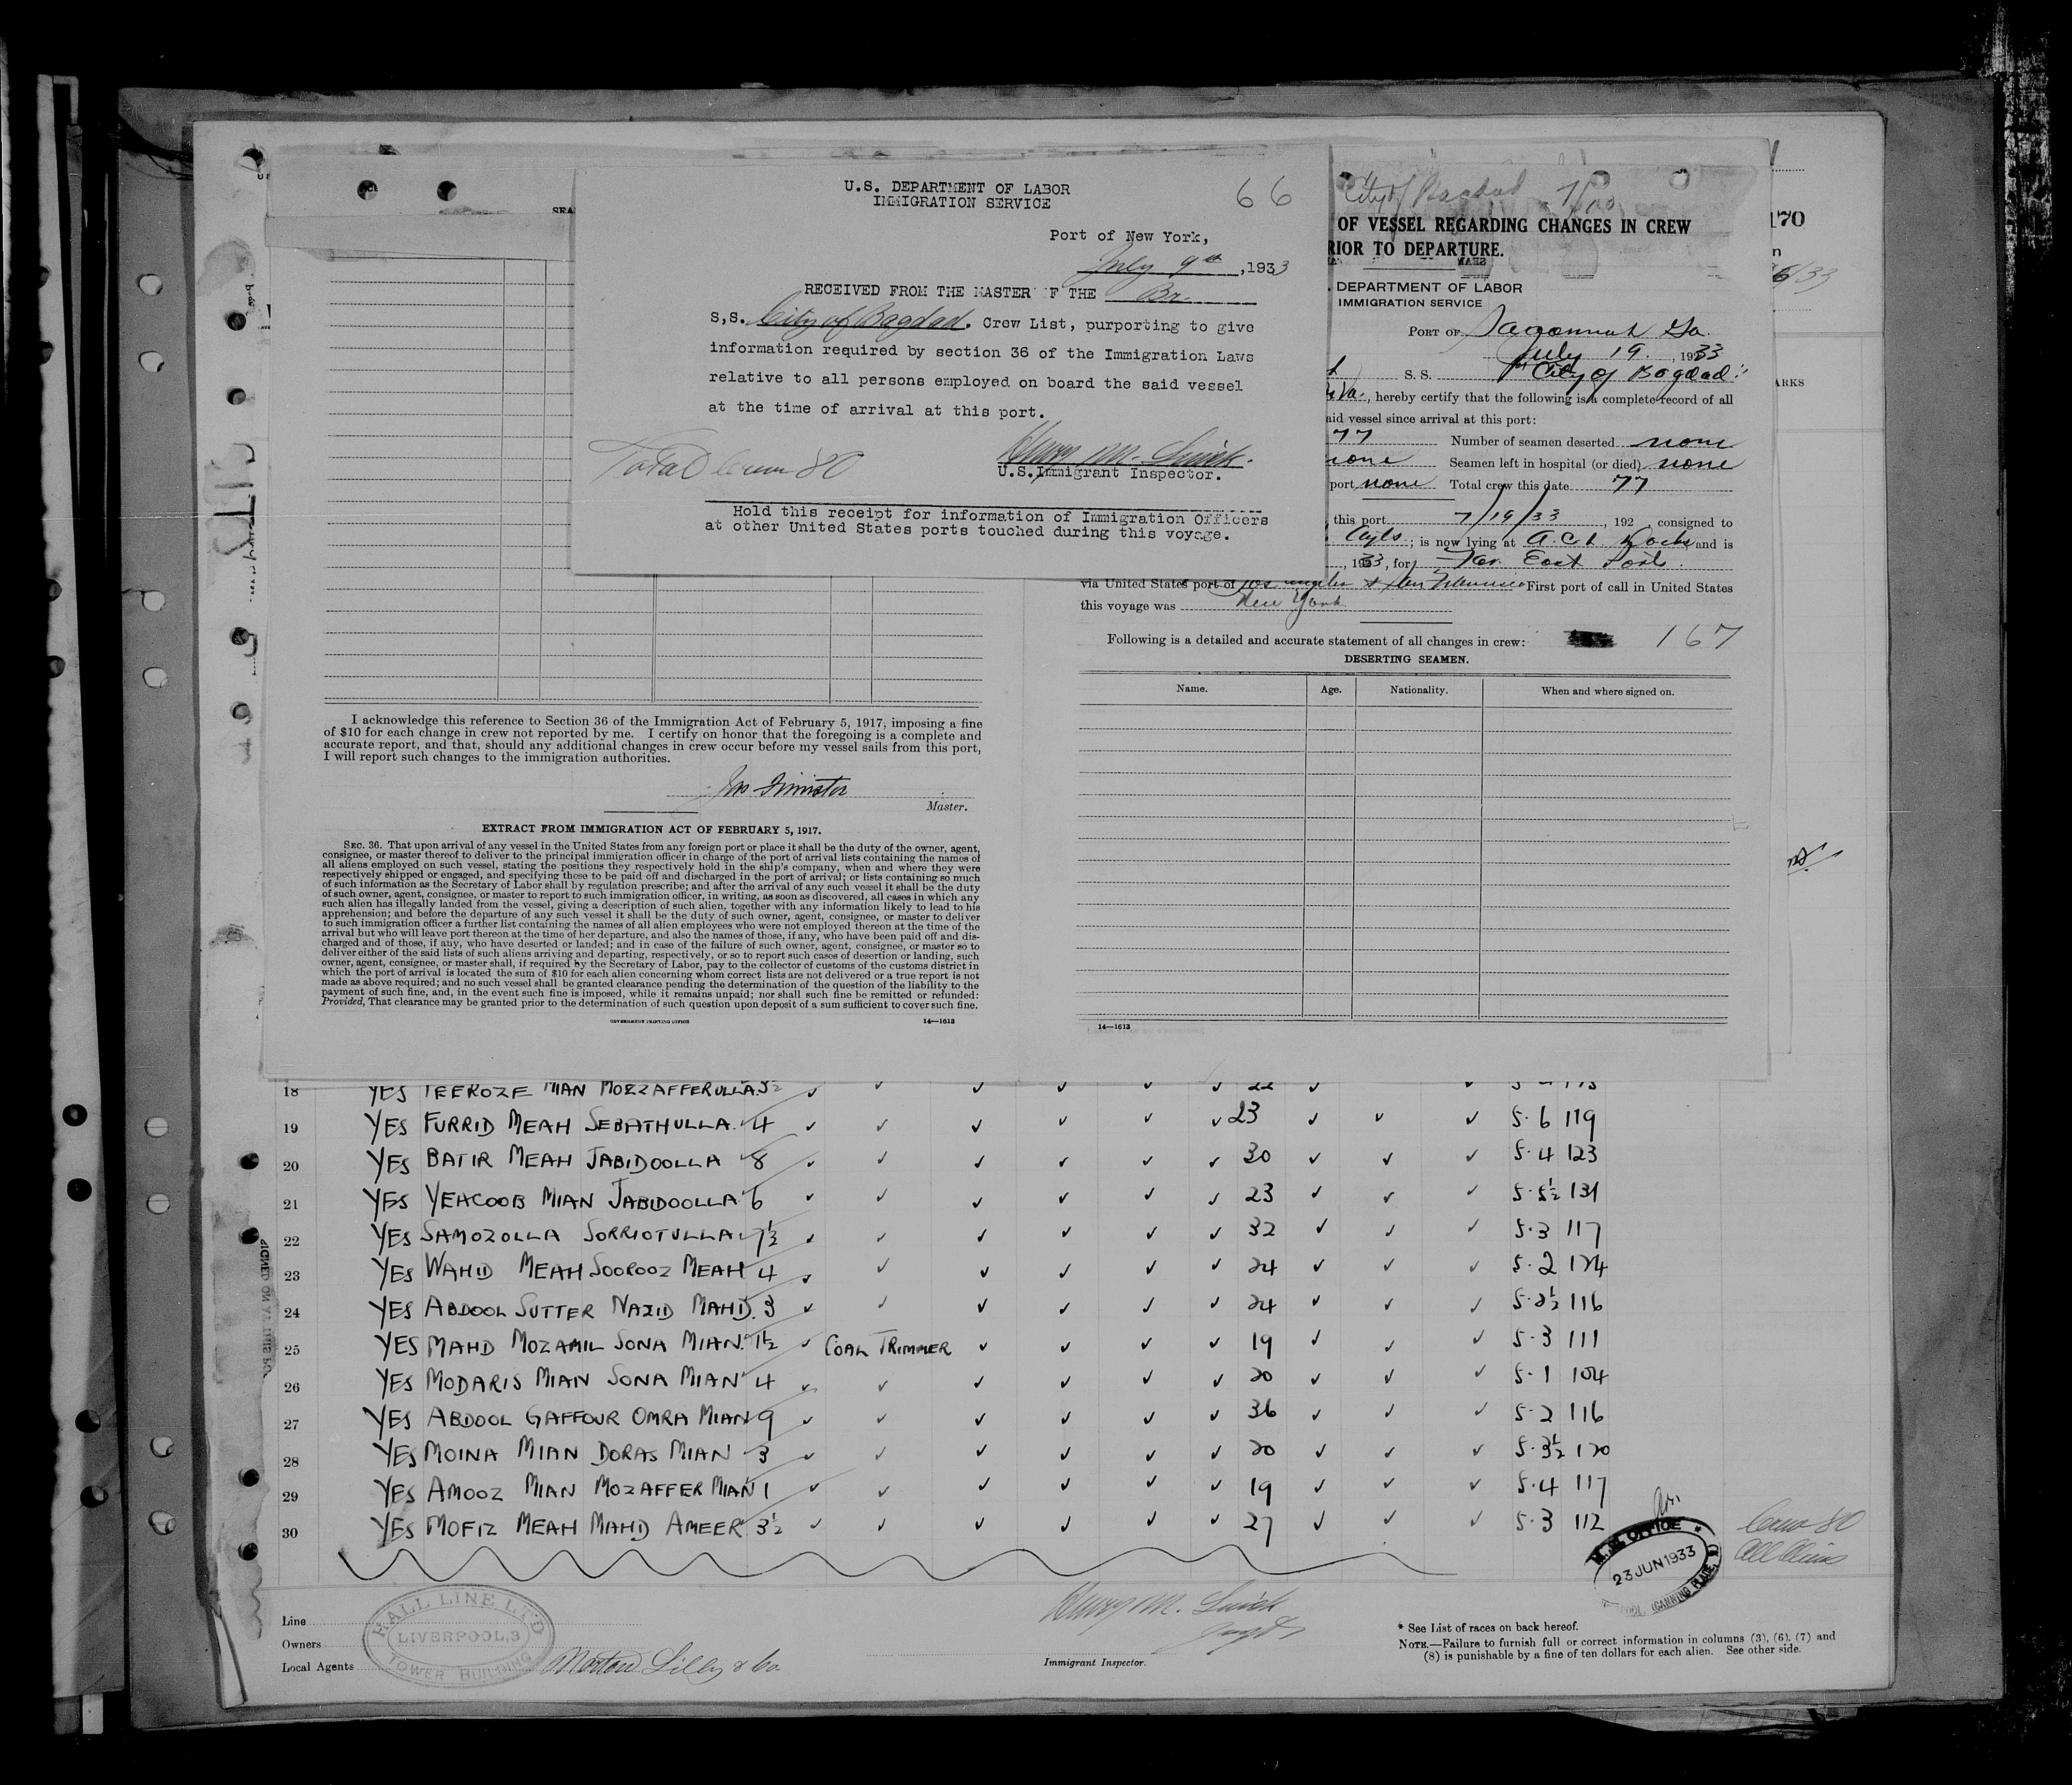 U.S. DEPARTMENT OF LABOR
IMMIGRATION SERVICE
66
Port of New York,
July 9th, 1933
RECEIVED FROM THE MASTER OF THE Br.
S,S. City of Bagdad. Crew List, purporting to give
information required by section 36 of the Immigration Laws
relative to all persons employed on board the said vessel
at the time of arrival at this port.
Total Crew 80
Henry M.
U.S. Immigrant Inspector.
Hold this receipt for information of Immigration Officers
at other United States ports touched during this voyage.
City of Bagdad
OF VESSEL REGARDING CHANGES IN CREW
RIOR TO DEPARTURE.
DEPARTMENT OF LABOR
IMMIGRATION SERVICE
PORT OF Savannah Ga.
July 19, 1933
S. S. "City of Bagdad"
, hereby certify that the following is a complete record of all
aid vessel since arrival at this port:
77 Number of seamen deserted none
none Seamen left in hospital (or died) none
port none Total crew this date 77
this port 7/19/33, 192 consigned to
; is now lying at A.C.L Docks and is
, 1933, for Far East Ports.
via United States port of Los Angeles & San Francisco First port of call in United States
this voyage was New York
Following is a detailed and accurate statement of all changes in crew: 167
DESERTING SEAMEN.
Name. Age. Nationality. When and where signed on.
14—1613
170
6/33
ARKS
I acknowledge this reference to Section 36 of the Immigration Act of February 5, 1917, imposing a fine
of $10 for each change in crew not reported by me. I certify on honor that the foregoing is a complete and
accurate report, and that, should any additional changes in crew occur before my vessel sails from this port,
I will report such changes to the immigration authorities.
Master.
EXTRACT FROM IMMIGRATION ACT OF FEBRUARY 5, 1917.
SEC. 36. That upon arrival of any vessel in the United States from any foreign port or place it shall be the duty of the owner, agent,
consignee, or master thereof to deliver to the principal immigration officer in charge of the port of arrival lists containing the names of
all aliens employed on such vessel, stating the positions they respectively hold in the ship's company, when and where they were
respectively shipped or engaged, and specifying those to be paid off and discharged in the port of arrival; or lists containing so much
of such information as the Secretary of Labor shall by regulation prescribe; and after the arrival of any such vessel it shall be the duty
of such owner, agent, consignee, or master to report to such immigration officer, in writing, as soon as discovered, all cases in which any
such alien has illegally landed from the vessel, giving a description of such alien, together with any information likely to lead to his
apprehension; and before the departure of any such vessel it shall be the duty of such owner, agent, consignee, or master to deliver
to such immigration officer a further list containing the names of all alien employees who were not employed thereon at the time of the
arrival but who will leave port thereon at the time of her departure, and also the names of those, if any, who have been paid off and dis-
charged and of those, if any, who have deserted or landed; and in case of the failure of such owner, agent, consignee, or master so to
deliver either of the said lists of such aliens arriving and departing, respectively, or so to report such cases of desertion or landing, such
owner, agent, consignee, or master shall, if required by the Secretary of Labor, pay to the collector of customs of the customs district in
which the port of arrival is located the sum of $10 for each alien concerning whom correct lists are not delivered or a true report is not
made as above required; and no such vessel shall be granted clearance pending the determination of the question of the liability to the
payment of such fine, and, in the event such fine is imposed, while it remains unpaid; nor shall such fine be remitted or refunded:
Provided, That clearance may be granted prior to the determination of such question upon deposit of a sum sufficient to cover such fine.
GOVERNMENT PRINTING OFFICE 14—1613
18 YES FEEROZE MIAN MOZZAFFERULLA 3½ ✓ ✓ ✓ ✓ ✓ ✓ 22 ✓ ✓
19 YES FURRID MEAH SEBATHULLA 4 ✓ ✓ ✓ ✓ ✓ ✓ 23 ✓ ✓ ✓ 5.6 119
20 YES BATIR MEAH JABIDOOLLA 8 ✓ ✓ ✓ ✓ ✓ ✓ 30 ✓ ✓ ✓ 5.4 123
21 YES YEHCOOB MIAN JABIDOOLLA 6 ✓ ✓ ✓ ✓ ✓ ✓ 23 ✓ ✓ ✓ 5.5½ 131
22 YES SAMOZOLLA SORRIOTULLA 7½ ✓ ✓ ✓ ✓ ✓ ✓ 32 ✓ ✓ ✓ 5.3 117
23 YES WAHID MEAH SOOROOZ MEAH 4 ✓ ✓ ✓ ✓ ✓ ✓ 24 ✓ ✓ ✓ 5.2 124
24 YES ABDOOL SUTTER NAZID MAHD. 3 ✓ ✓ ✓ ✓ ✓ ✓ 24 ✓ ✓ ✓ 5.2½ 116
25 YES MAHD MOZAMIL SONA MIAN 1½ ✓ COAL TRIMMER ✓ ✓ ✓ ✓ 19 ✓ ✓ ✓ 5.3 111
26 YES MODARIS MIAN SONA MIAN 4 ✓ ✓ ✓ ✓ ✓ ✓ 20 ✓ ✓ ✓ 5.1 104
27 YES ABDOOL GAFFOUR OMRA MIAN 9 ✓ ✓ ✓ ✓ ✓ ✓ 36 ✓ ✓ ✓ 5.2 116
28 YES MOINA MIAN DORAS MIAN 3 ✓ ✓ ✓ ✓ ✓ ✓ 20 ✓ ✓ ✓ 5.3½ 120
29 YES AMOOZ MIAN MOZAFFER MIAN 1 ✓ ✓ ✓ ✓ ✓ ✓ 19 ✓ ✓ ✓ 5.4 117
30 YES MOFIZ MEAH MAHD AMEER 3½ ✓ ✓ ✓ ✓ ✓ ✓ 27 ✓ ✓ ✓ 5.3 112
OFFICE
23 JUN 1933
(CANNING PLACE)
Crew 80
All Aliens
Line
Owners
Local Agents
HALL LINE LTD
LIVERPOOL, 3
TOWER BUILDING
Morton Lilly & Co.
Henry M.
Immigrant Inspector.
* See List of races on back hereof.
NOTE.—Failure to furnish full or correct information in columns (3), (6), (7) and
(8) is punishable by a fine of ten dollars for each alien. See other side.